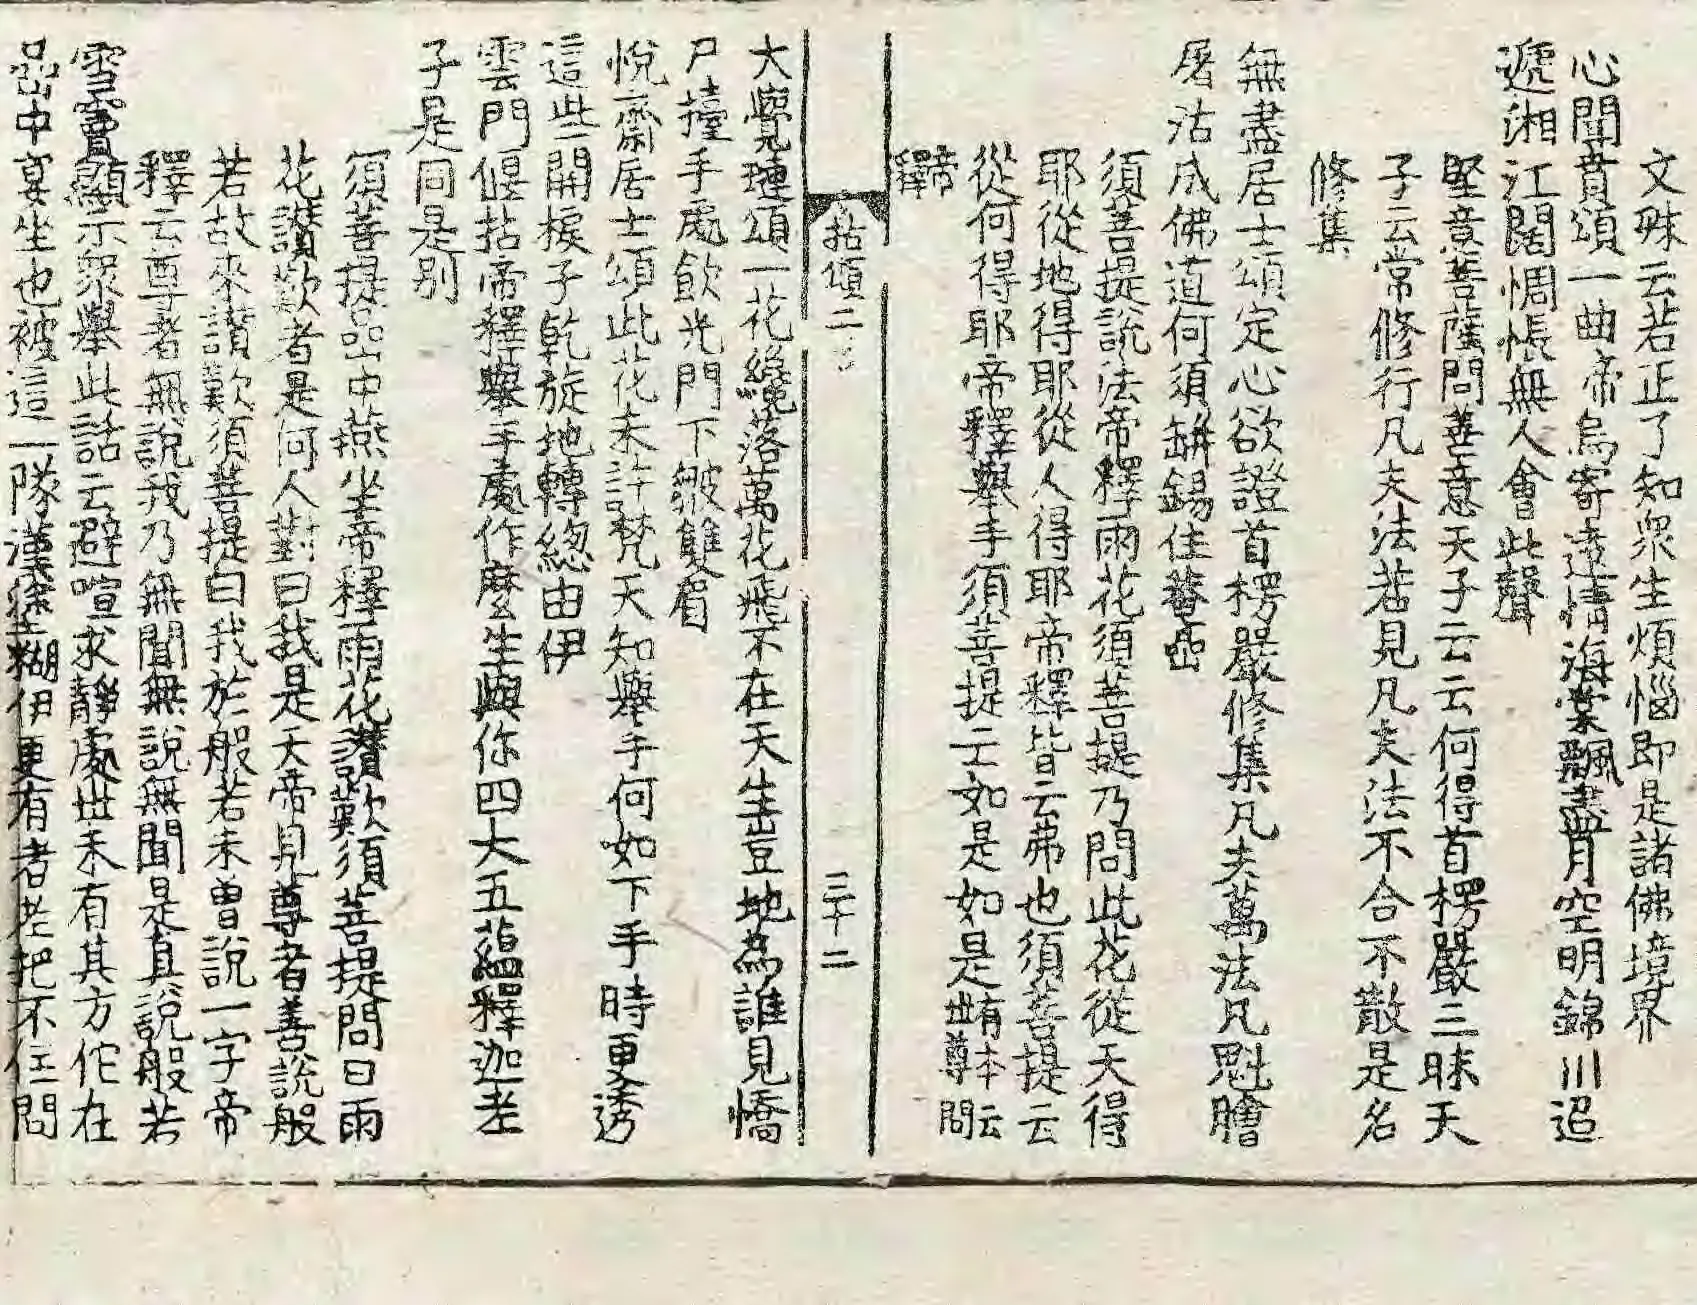 文殊云若正了知衆生煩惱即是諸佛境界
心聞賁頌一曲帝烏寄遠情海棠飄盡月空明錦川迢
遞湘江闊惆悵無人會此聲
堅意菩薩問善意天子云云何得首楞嚴三昧天
子云常修行凡夫法若見凡夫法不合不散是名
修集
無盡居士頌定心欲證首楞嚴修集凡夫萬法凡魁膾
屠沽成佛道何須缾錫住菴嵓
須菩提說法帝釋雨花須菩提乃問此花從天得
耶從地得耶從人得耶帝釋皆云弗也須菩提云
從何得耶帝釋擧手須菩提云如是如是有本云世尊問
帝釋
拈頌二
三十二
大覺璉頌一花纔落萬花飛不在天生豈地爲誰見憍
尸擡手處飮光門下皺雙眉
悅齋居士頌此花未許梵天知擧手何如下手時更透
這些開棙子乾旋地轉緫由伊
雲門偃拈帝釋擧手處作麽生與你四大五蘊釋迦老
子是同是別
須菩提嵓中燕坐帝釋雨花讃歎須菩提問曰雨
花讃歎者是何人對曰我是天帝見尊者善說般
若故來讃歎須菩提曰我於般若未曾說一字帝
釋云尊者無說我乃無聞無說無聞是眞說般若
雪竇顯示衆擧此話云避喧求靜處世未有其方佗在
嵓中宴坐也被這一隊漢塗糊伊更有者老把不住問